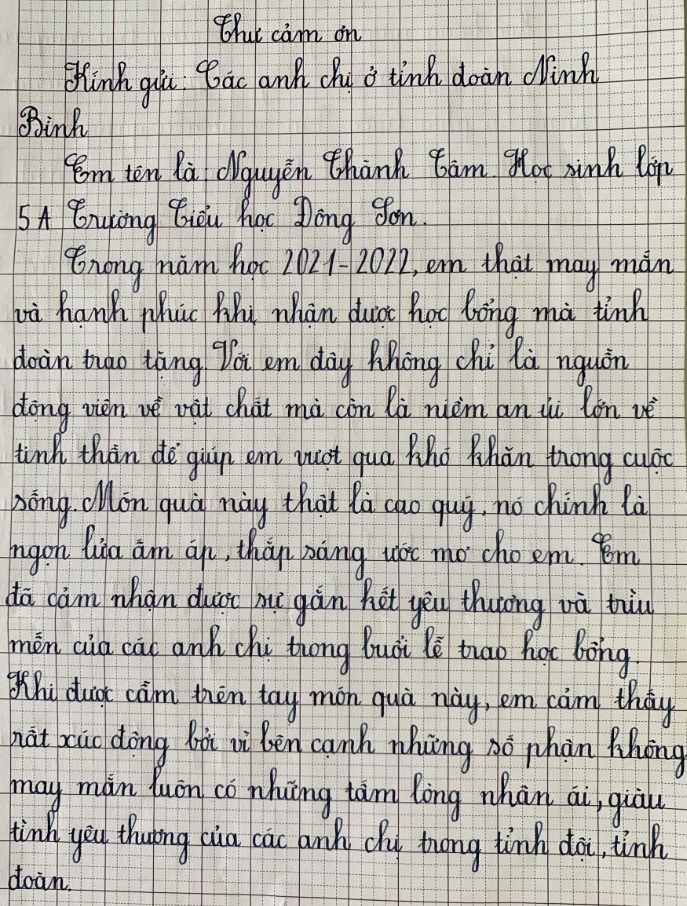 Thư cảm ơn
Kính gửi: Các anh chị ở tỉnh đoàn Ninh
Bình
Em tên là: Nguyễn Thành Tâm. Học sinh lớp
5A Trường Tiểu học Đông Sơn.
Trong năm học 2021-2022, em thật may mắn
và hạnh phúc khi nhận được học bổng mà tỉnh
đoàn trao tặng. Với em đây không chỉ là nguồn
động viên về vật chất mà còn là niềm an ủi lớn về
tinh thần để giúp em vượt qua khó khăn trong cuộc
sống. Món quà này thật là cao quý, nó chính là
ngọn lửa ấm áp, thắp sáng ước mơ cho em. Em
đã cảm nhận được sự gắn kết yêu thương và trìu
mến của các anh chị trong buổi lễ trao học bổng.
Khi được cầm trên tay món quà này, em cảm thấy
rất xúc động bởi vì bên cạnh những số phận không
may mắn luôn có những tấm lòng nhân ái, giàu
tình yêu thương của các anh chị trong tỉnh đội, tỉnh
đoàn.